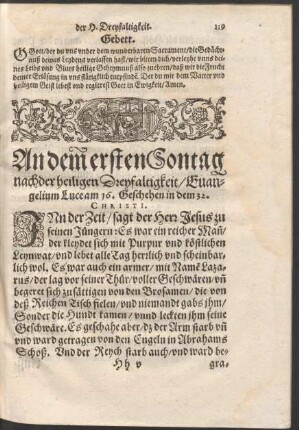 der H. Dreyfaltigkeit. 219
Gebett.
O Gott/der du vns vnder dem wunderbaren Sacrament/die Gedächt-
nuß deines Leydens verlassen hast/wir bitten dich/verleyhe vnns dei-
nes Leibs vnd Blůts heilige Geheymnuß also zuehren/daß wir die Frucht
deiner Erlösung in vns stätigklich empfindē. Der du mit dem Vatter vnd
heiligem Geist lebest vnd regierest Gott in Ewigkeit/Amen.
An dem ersten Sontag
nach der heiligen Dreyfaltigkeit/Euan-
gelium Luce am 16. Geschehen in dem 32.
CHRISTI.
IN der Zeit/sagt der Herr Jesus zu
seinen Jüngern: Es war ein reicher Mañ/
der kleydet sich mit Purpur vnd köstlichen
Leynwat/vnd lebet alle Tag herrlich vnd scheinbar-
lich wol. Es war auch ein armer/mit Namē Laza-
rus/der lag vor seiner Thür/voller Geschwären/vñ
begeret sich zusättigen von den Brosamen/die von
deß Reichen Tisch fielen/vnd niemandt gabs jhm/
Sonder die Hundt kamen/vnnd leckten jhm seine
Geschwäre. Es geschahe aber/dz der Arm starb vñ
vnd ward getragen von den Engeln in Abrahams
Schoß. Vnd der Reych starb auch/vnd ward be-
Hh v gra-